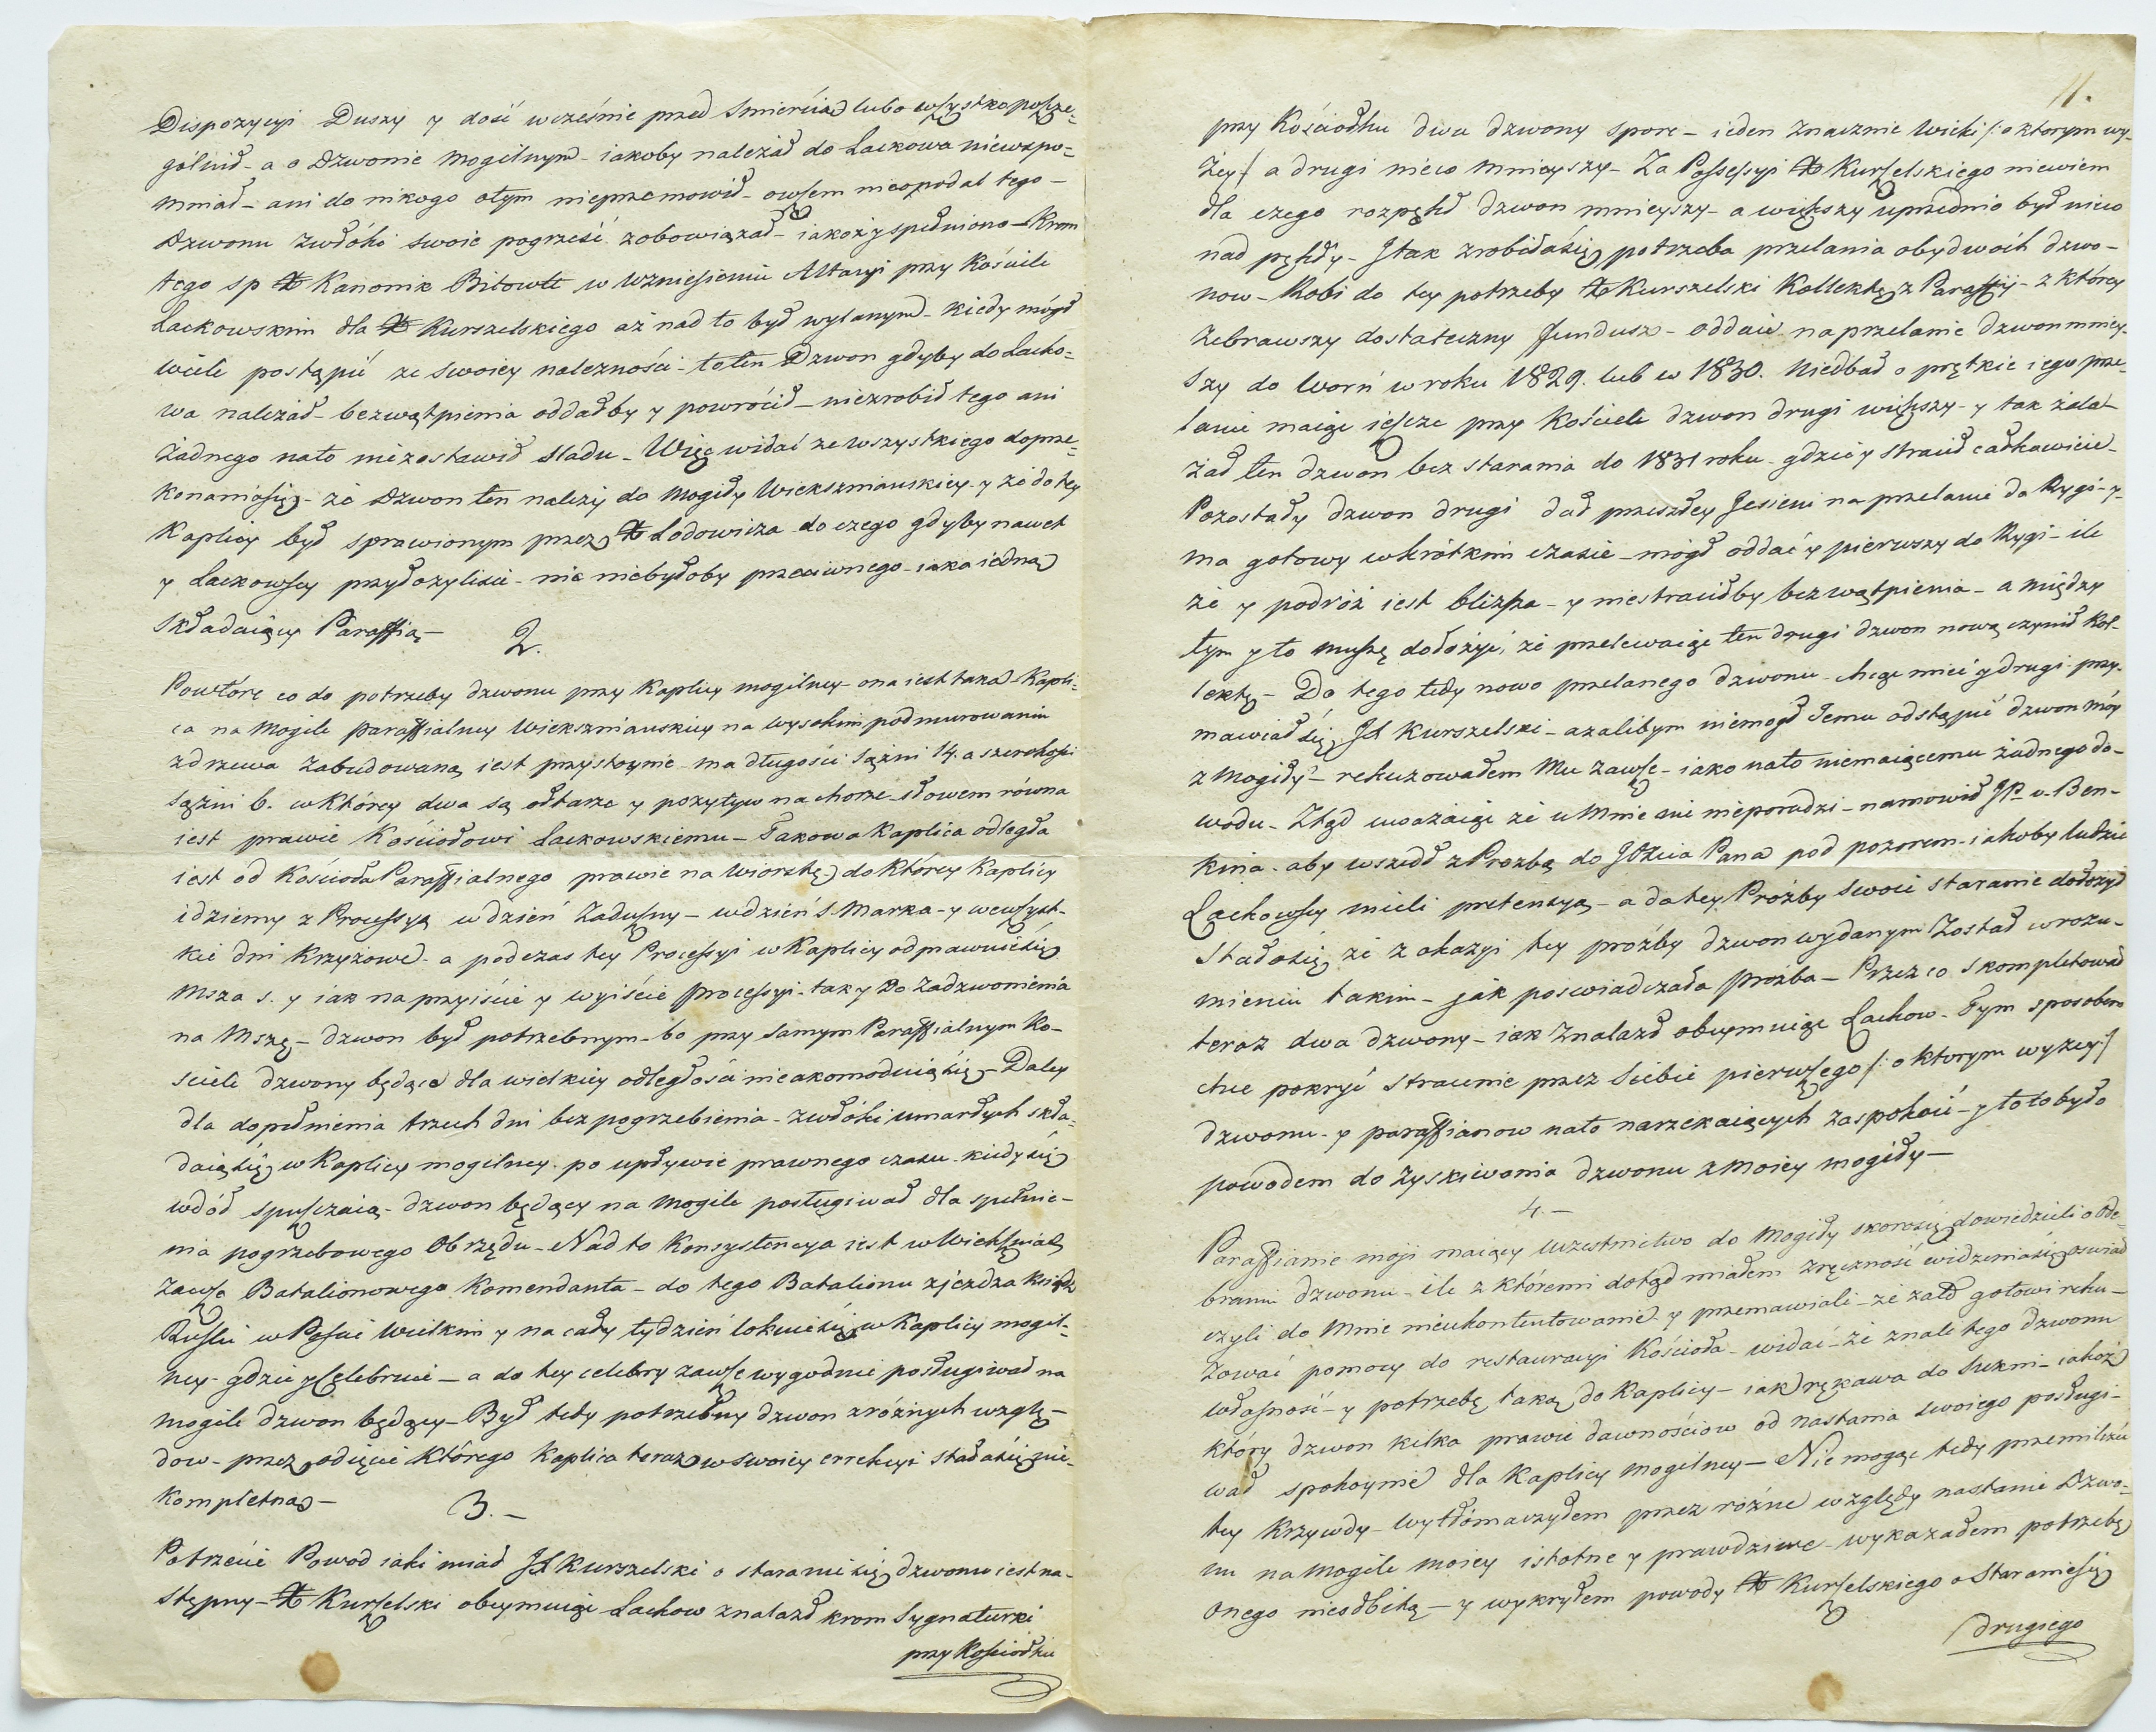 Dispozycyi Duszy y dość wcześnie przed Smiercią lubo wszystko poszcze-
gólnił - a o Dzwonie Mogilnym - iakoby należał do Lackowa niewspo-
mniał - ani do nikogo otym nieprzemowił - owszem nieopodal tego -
Dzwonu zwłóki swoie pogrześć zobowiązał - iakoż y spełniono - Krom
tego sp X Kanonik Bitowtt w Wzniesieniu Altaryi przy Kościele
Lackowskim dla X Kurszelskiego aż nad to był wylanym - kiedy mógł
wiele postąpić ze swoiey należności - to ten Dzwon gdyby do Lacko-
wa należał - bezwątpienia oddałby y powrócił - niezrobił tego ani
żadnego nato niezostawił sladu - Więc widać ze wszystkiego do prze-
konaniasię - że Dzwon ten należy do Mogiły Wiekszniauskiey - y że do tey
Kaplicy był sprawionym przez X Lodowicza do czego gdyby nawet
y Lackowscy przyłożylisie - nic niebyłoby przeciwnego - iako iedną
składaiący Paraffią -
2.
Powtóre co do potrzeby dzwonu przy Kaplicy mogilney - ona iest taka - Kapli-
ca na Mogile paraffialney Wiekszniauskiey na wysokim podmurowaniu
zdrzewa zabudowaną iest przystoynie - ma długości sążni 14. a szerokości
sążni 6. wktórey dwa są ołtarze y pozytyw na chorze - słowem równa
iest prawie Kościołowi Lackowskiemu - Takowa Kaplica odległa
iest od Kościoła Paraffialnego prawie na wiorstę - do którey Kaplicy
idziemy z Processyą w dzień Zaduszny - wdzień S. Marka - y wewszyst-
kie dni Krzyżowe - a podczas tey Processyi w Kaplicy odprawuiesię
Msza s. y iak na przyiście y wyiście processyi - tak y do Zadzwonienia
na Mszę - dzwon był potrzebnym - bo przy samym Paraffialnym Ko-
sciele dzwony będące dla wielkiey odległości nieakomoduiąsię - Daley
dla dopełnienia trzech dni bez pogrzebienia - zwłóki umarłych skła-
daiąsię w Kaplicy mogilney - po upływie prawnego czasu - kiedysię
wdół spuszczaią - dzwon będący na Mogile posługiwał dla spełnie-
nia pogrzebowego Obrzędu - Nad to Konsystencya iest w Wiekszniach
zawsze Batalionowego Komendanta - do tego Batalionu zjeżdza Ksiądz
Ruski w Poście Wielkim y na cały tydzień lokuiesię w Kaplicy mogil-
ney - gdzie y Celebruie - a do tey celebry zawsze wygodnie posługiwał na
mogile dzwon będący - Był tedy potrzebny dzwon zróżnych wzglę-
dow - przez odięcie którego Kaplica teraz w swoiey errekcyi stałasię nie-
kompletną -
3. -
Potrzecie Powod iaki miał JX Kurszelski o staraniesię dzwonu iest na-
stępny - X Kurszelski obeymuiąc Lackow znalazł krom Sygnaturki
przy Kosciołku
11.
przy Kościołku dwa dzwony spore - ieden znacznie wielki /: o ktorym wy-
żey / a drugi nieco mnieyszy - Za Possessyi X Kurszelskiego niewiem
dla czego rozpękł dzwon mnieyszy - a większy uprzednio był nieco
nad pękły - Jtak zrobiłasię potrzeba przelania obydwoch dzwo-
now - Robi do tey potrzeby X Kurszelski Kollektę z Paraffij - z którey
zebrawszy dostateczny fundusz - oddaie na przelanie dzwon mniey-
szy do Worń w roku 1829. lub w 1830. Niedbał o prętkie iego prze-
lanie maiąc ieszcze przy Kościele dzwon drugi większy - y tak zale-
żał ten dzwon bez starania do 1831 roku - gdzie y stracił całkowicie -
Pozostały dzwon drugi dał przeszłey Jesieni na przelanie do Rygi - y
ma gotowy wkrótkim czasie - mógł oddać y pierwszy do Rygi - ile
że y podróż iest blizsza - y niestraciłby bezwątpienia - a między
tym y to muszę dołożyć, że przelewaiąc ten drugi dzwon nową czynił Kol-
lektę - Do tego tedy nowo przelanego dzwonu chcąc mieć y drugi przy-
mawiał się JX Kurszelski - azalibym niemogł Jemu odstąpić dzwon móy
z Mogiły - rekuzowałem Mu zawsze - iako nato niemaiącemu żadnego do-
wodu - Ztąd uważaiąc że u Mnie nie nieporadzi - namowił JP. v. Ben-
kina - aby wszedł z Prozbą do JOXcia Pana pod pozorem - iakoby ludzie
Lackowscy mieli pretensyą - a do tey Prośby swoie staranie dołożył
Stałosię że z okazyi tey prośby dzwon wydanym został w rozu-
mieniu takim - jak poswiadczała proźba - Przez co skompletował
teraz dwa dzwony - iak znalazł obeymuiąc Lackow - Tym sposobem
chce pokryć stracenie przez Siebie pierwszego /: o ktorym wyzey :/
dzwonu - y paraffianow nato narzekaiących zaspokoić - y toto było
powodem do zyskiwania dzwonu z Moiey mogiły -
4. -
Paraffianie moji maiący uczestnictwo do Mogiły skorosię dowiedzieli o Ode-
braniu dzwonu - ile z któremi dotąd miałem zręczność widzeniasię oswiad-
czyli do Mnie nieukontentowanie y przemawiali - że zatо gotowi reku-
zować pomocy do restauracyi Kościoła - widać - że znali tego dzwonu
własność - y potrzebę taką do Kaplicy - iak rękawa do sukni - iakoż
który dzwon kilka prawie dawnościow od nastania swoiego posługi-
wał spokoynie dla Kaplicy mogilney - Nie mogąc tedy przemilczeć
tey Krzywdy - wytłómaczyłem przez różne względy nastanie Dzwo-
nu na Mogile moiey istotne y prawdziwe - wykazałem potrzebę
Onego nieodbitą - y wykryłem powody X Kurszelskiego o Staraniesię
drugiego